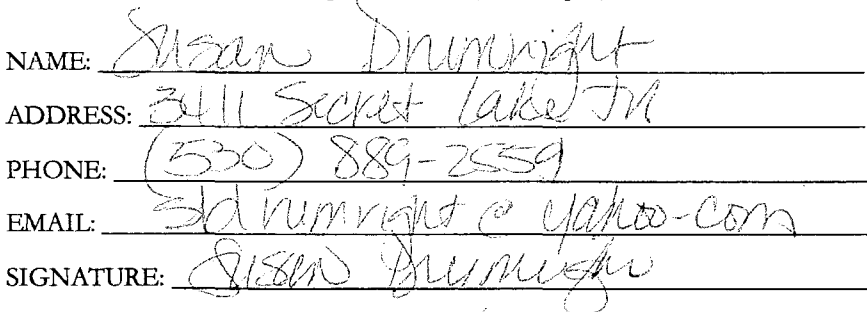 NAME: Susan Drumright
ADDRESS: 3411 Secret Lake Trl
PHONE: (530) 889-2559
EMAIL: sldrumright@yahoo.com
SIGNATURE: Susan Drumright